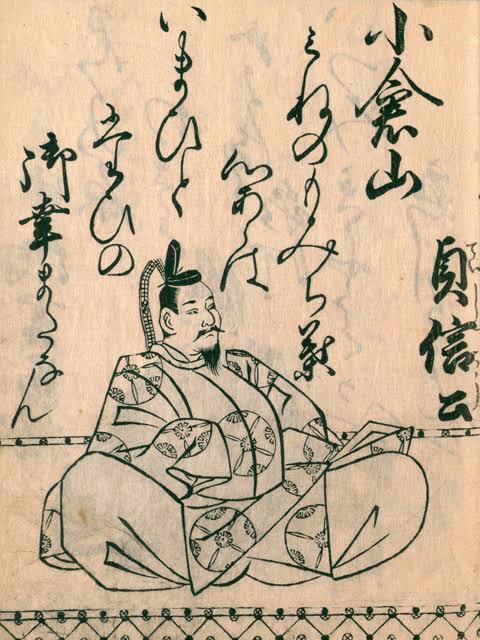 貞信公
小倉山
みねのもみち葉
心あらは
いまひと
たひの
御幸またなん